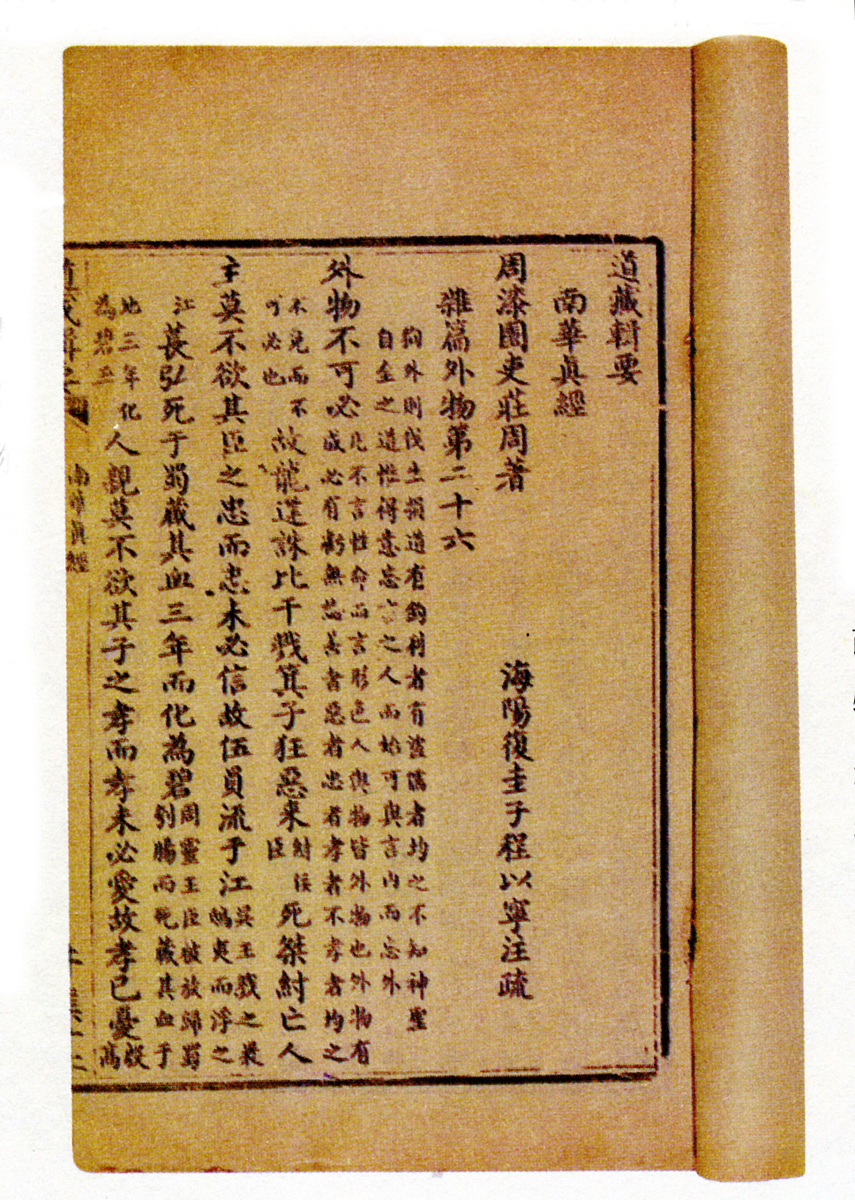 道藏輯要
南華眞經
周漆園吏莊周著　海陽復圭子程以寧注疏
雜篇外物第二十六
狥外則伐生損道有鈎利者有盜儒者均之不知神聖
自全之道惟得意忘言之人而始可與言內而忘外
外物不可必此不言性命而言形色人與物皆外物也外物有
成必有虧無論善者惡者忠者孝者不孝者均之
不免而不
可必也故龍逄誅比干戮箕子狂惡來紂佞
臣死桀紂亡人
主莫不欲其臣之忠而忠未必信故伍員流于江吳王戮之裝
鴟夷而浮之
江萇弘死于蜀藏其血三年而化為碧周靈王臣被放歸蜀
刳腸而死藏其血于
地三年化
為碧玉人親莫不欲其子之孝而孝未必愛故孝已憂殷
高
南華眞經